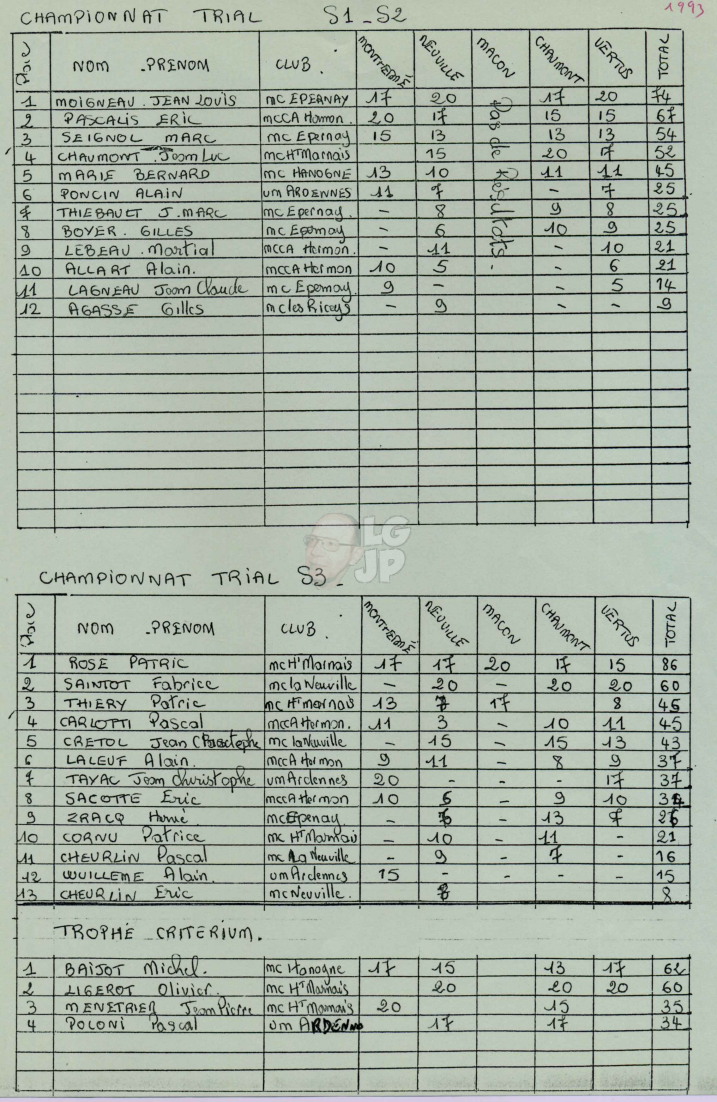 CHAMPIONNAT TRIAL S1_S2 1993
NOM _PRENOM CLUB. MONTHERMÉ. NEUVILLE MACON CHAUMONT VERTUS TOTAL
1 MOIGNEAU. JEAN LOUIS mc EPERNAY 17 20 17 20 74
2 PASCALIS ERIC mccA Hormon. 20 17 15 15 67
3 SEIGNOL MARC mc Epernay 15 13 13 13 54
4 CHAUMONT Jean Luc mc HtMarnais 15 20 7 52
5 MARIE BERNARD mc HANOGNE 13 10 11 11 45
6 PONCIN ALAIN um ARDENNES 11 7 - 7 25
7 THIEBAULT J.MARC mc Epernay. - 8 9 8 25
8 BOYER. GILLES mc Epernay - 6 10 9 25
9 LEBEAU. Martial mccA Hermon. - 11 - 10 21
10 ALLART Alain. mccA Hermon 10 5 - 6 21
11 LAGNEAU Jean Claude mc Epernay. 9 - - 5 14
12 AGASSE Gilles mc les Riceys - 9 - - 9
Pas de Résultats.
LG
JP
CHAMPIONNAT TRIAL S3_
NOM _PRENOM CLUB. MONTHERMÉ. NEUVILLE MACON CHAUMONT VERTUS TOTAL
1 ROSE PATRIC mc Ht Marnais 17 17 20 17 15 86
2 SAINTOT Fabrice mc la Neuville - 20 - 20 20 60
3 THIERY Patric mc Ht marnais 13 7 17 8 45
4 CARLOTTI Pascal mccA Hermon. 11 3 - 10 11 45
5 CRETOL Jean Christophe mc la Neuville - 15 - 15 13 43
6 LALEUF Alain. mccA Hermon 9 11 - 8 9 37
7 TAYAC Jean Christophe um Ardennes 20 - - - 17 37
8 SACOTTE Eric mccA Hermon 10 5 9 10 34
9 ZRACQ Hervé mc Epernay. - 6 - 13 7 26
10 CORNU Patrice mc Ht Marnais - 10 - 11 - 21
11 CHEURLIN Pascal mc La Neuville - 9 - 7 - 16
12 WUILLEME Alain. um Ardennes 15 - - - - 15
13 CHEURLIN Eric mc Neuville. 8 8
TROPHÉ _CRITERIUM.
1 BAIJOT Michel. mc Hanogne 17 15 13 17 62
2 LIGEROT Olivier. mc Ht Marnais 20 20 20 60
3 MENETRIER Jean Pierre mc Ht Marnais 20 15 35
4 POLONI Pascal um ARDENNE 17 17 34